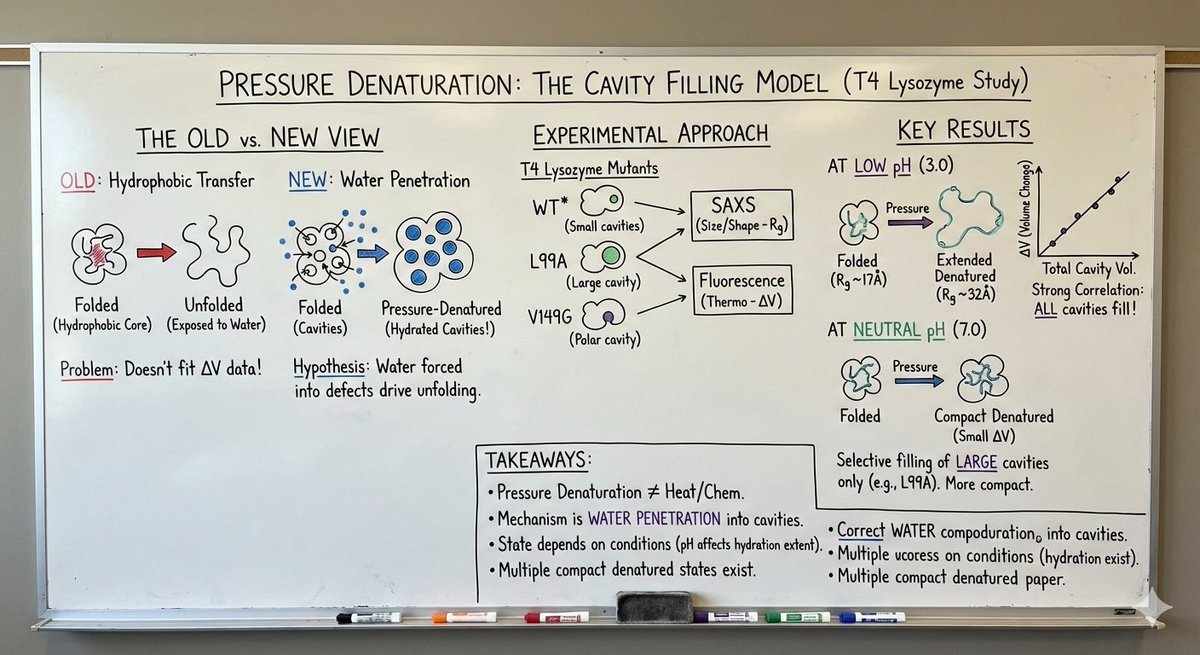 PRESSURE DENATURATION: THE CAVITY FILLING MODEL (T4 Lysozyme Study)
THE OLD vs. NEW VIEW
OLD: Hydrophobic Transfer
NEW: Water Penetration
Folded
(Hydrophobic Core)
Unfolded
(Exposed to Water)
Folded
(Cavities)
Pressure-Denatured
(Hydrated Cavities!)
Problem: Doesn't fit ΔV data!
Hypothesis: Water forced
into defects drive unfolding.
EXPERIMENTAL APPROACH
T4 Lysozyme Mutants
WT*
(Small cavities)
L99A
(Large cavity)
V149G
(Polar cavity)
SAXS
(Size/Shape - Rg)
Fluorescence
(Thermo - ΔV)
KEY RESULTS
AT LOW pH (3.0)
Pressure
Folded
(Rg~17Å)
Extended
Denatured
(Rg~32Å)
ΔV (Volume Change)
Total Cavity Vol.
Strong Correlation:
ALL cavities fill!
AT NEUTRAL pH (7.0)
Pressure
Folded
Compact Denatured
(Small ΔV)
Selective filling of LARGE cavities
only (e.g., L99A). More compact.
TAKEAWAYS:
• Pressure Denaturation ≠ Heat/Chem.
• Mechanism is WATER PENETRATION into cavities.
• State depends on conditions (pH affects hydration extent).
• Multiple compact denatured states exist.
• Correct WATER compoduration. into cavities.
• Multiple ucoess on conditions (hydration exist).
• Multiple compact denatured paper.